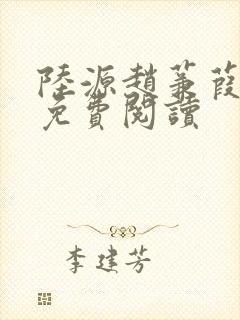 陸源趙蒹葭
免費閱讀
李建芳